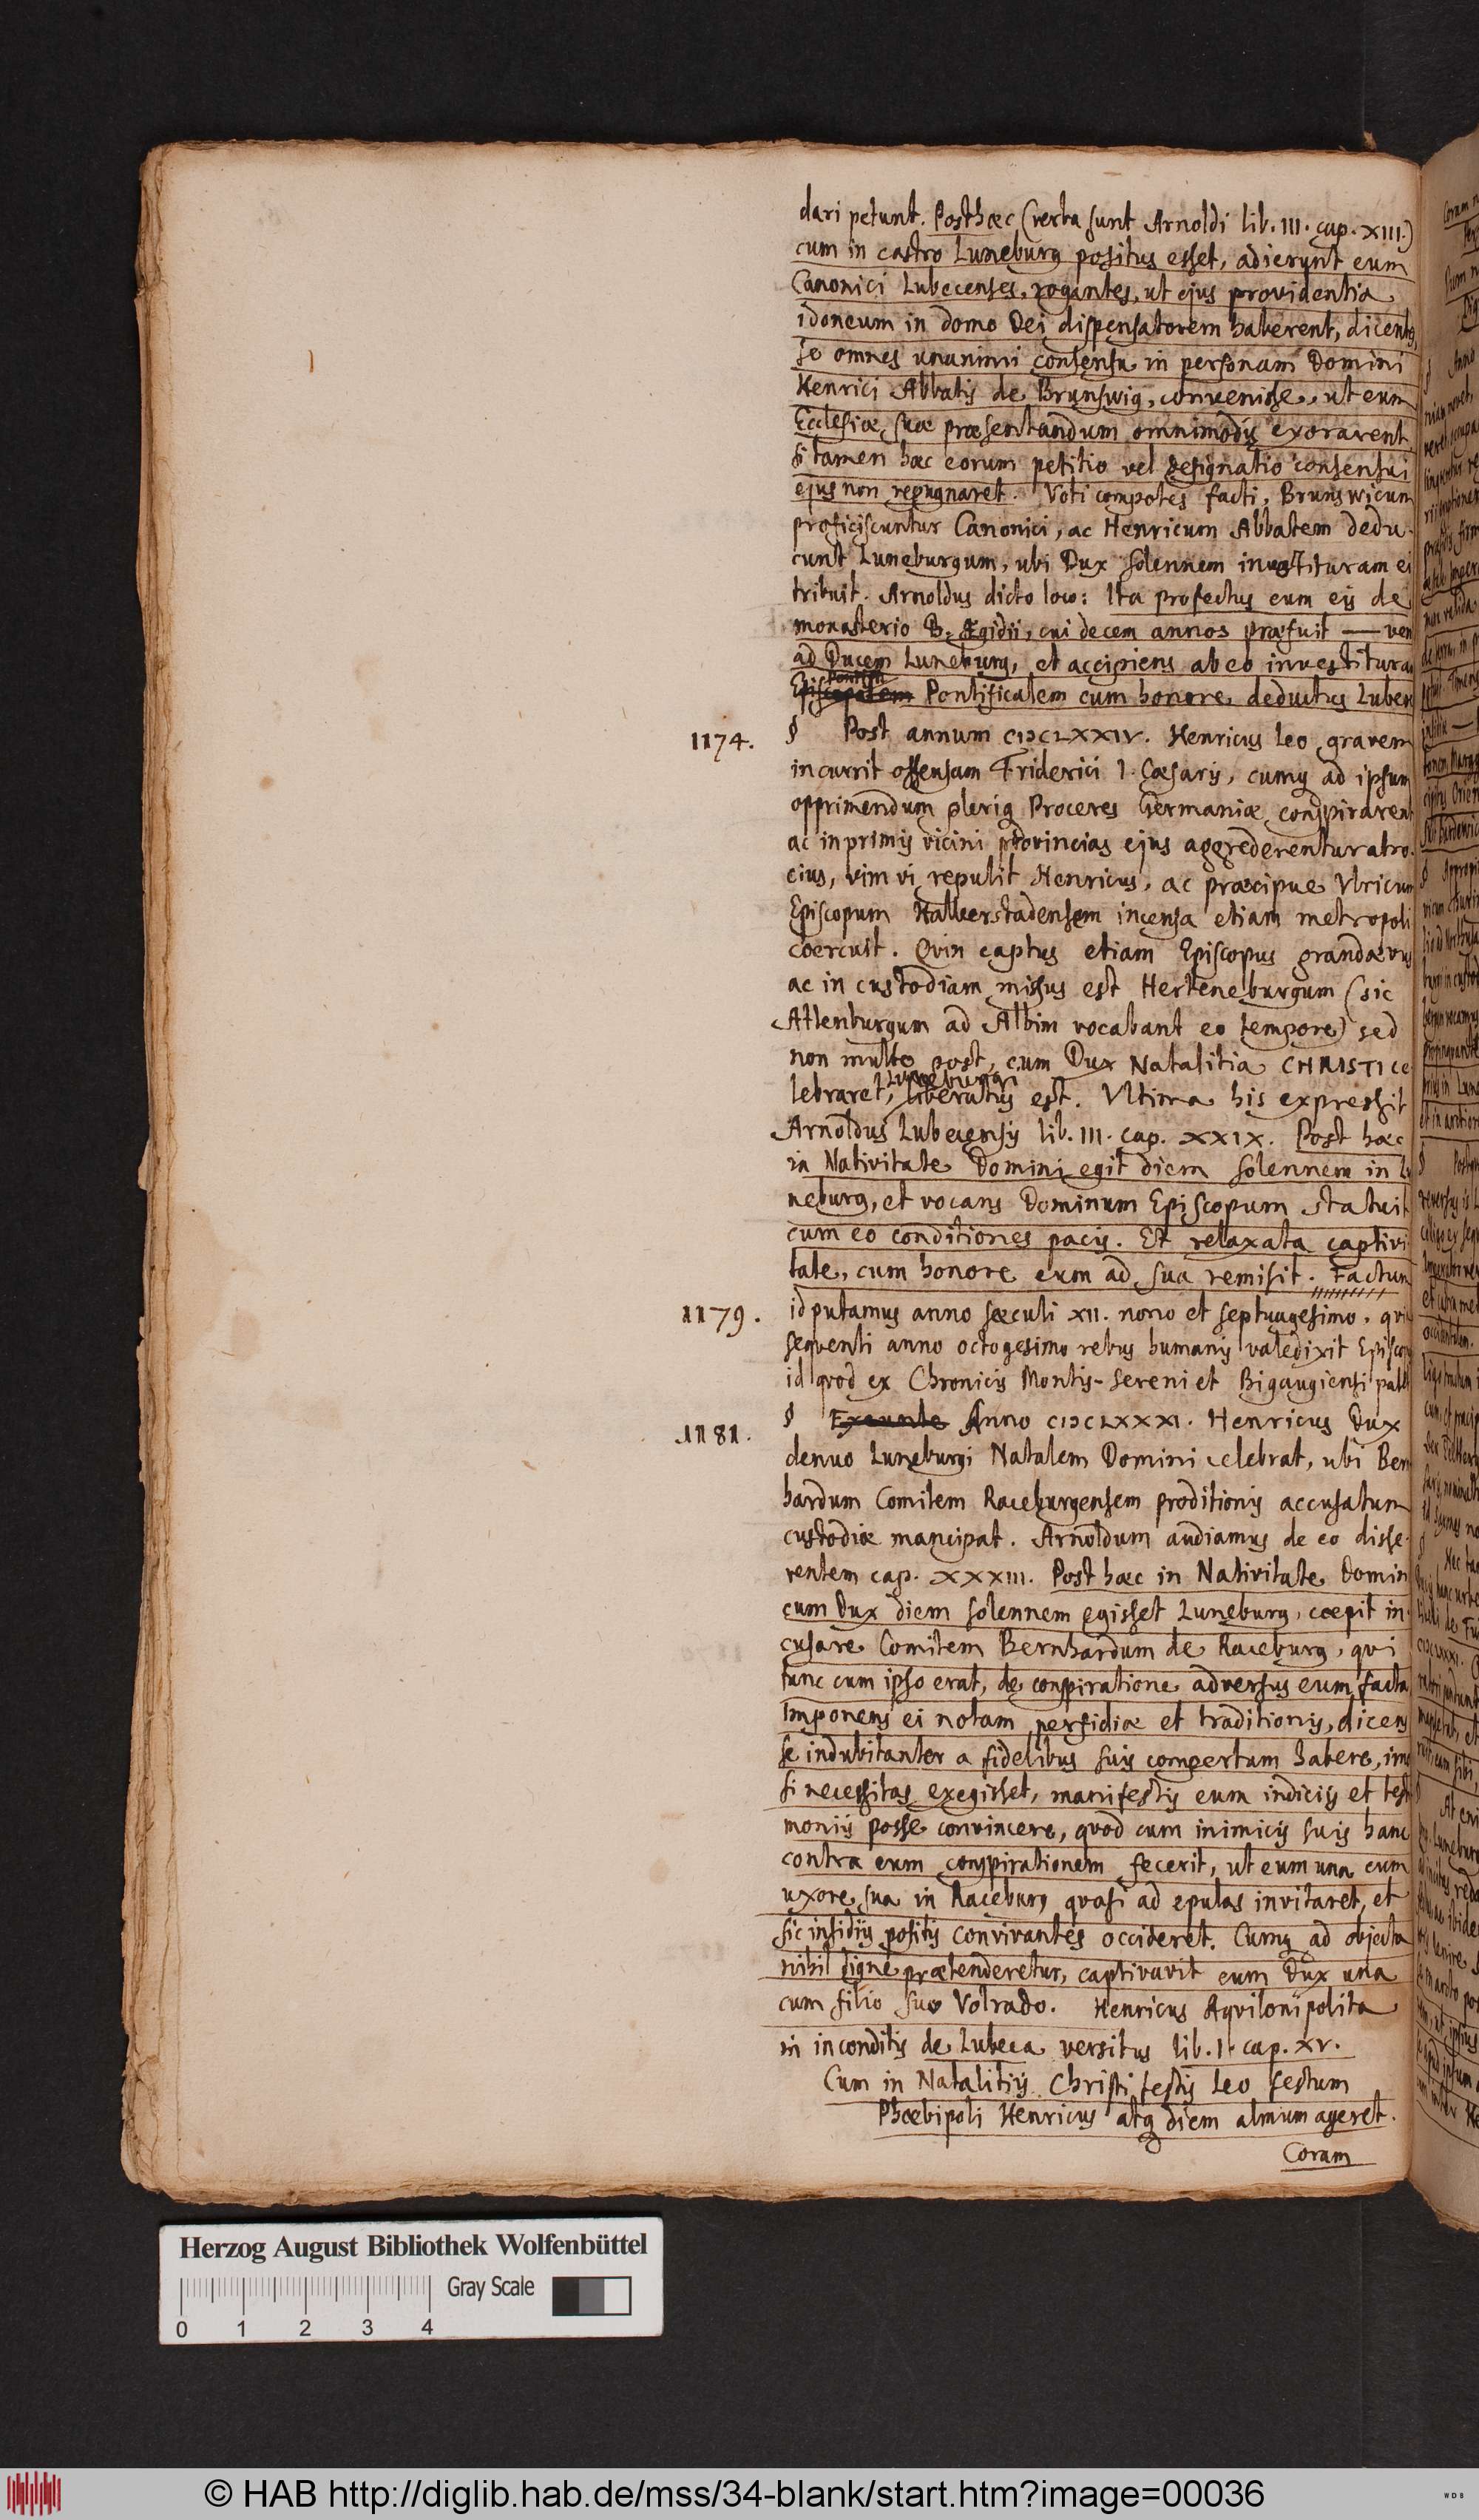 dari petunt. Posthæc (verba sunt Arnoldi lib. III. cap. XIII.)
cum in castro Luneburg positus esset, adierunt eum
Canonici Lubecenses, rogantes, ut ejus providentia
idoneum in domo Dei dispensatorem haberent, dicentes,
se omnes unanimi consensu in personam Domini
Henrici Abbatis de Brunswig, convenisse, ut eum
Ecclesiæ suæ præsentandum omnimodis exorarent
si tamen hæc eorum petitio vel designatio consensui
ejus non repugnaret. Voti compotes facti, Brunswicum
proficiscuntur Canonici, ac Henricum Abbatem dedu-
cunt Luneburgum, ubi Dux solennem investituram ei
tribuit. Arnoldus dicto loco: Ita profectus cum eis de
monasterio B. Ægidii, cui decem annos præfuit — ven
ad Ducem Luneburg, et accipiens ab eo investitura
Episcopalem Pontificalem cum honore deductus Lubec
1174. § Post annum CIↃCLXXIV. Henricus Leo gravem
incurrit offensam Friderici I. Cæsaris, cumq ad ipsum
opprimendum pleriq Proceres Germaniæ conspirarent
ac inprimis vicini provincias ejus aggrederentur atro-
cius, vim vi repulit Henricus, ac præcipue Vlricum
Episcopum Halberstadensem incensa etiam metropoli
coercuit. Qvin captus etiam Episcopus grandævus
ac in custodiam missus est Herteneburgum (sic
Atlenburgum ad Albim vocabant eo tempore) sed
non multo post, cum Dux Natalitia CHRISTI ce
Luneburgi
lebraret, liberatus est. Vltima his expressit
Arnoldus Lubecensis lib. III. cap. XXIX. Post hæc
in Nativitate Domini egit diem solennem in Lu
neburg, et vocans Dominum Episcopum statuit
cum eo conditiones pacis. Et relaxata captivi-
tate, cum honore eum ad sua remisit. Factum
1179. id putamus anno sæculi XII. nono et septuagesimo, qvi
seqventi anno octogesimo rebus humanis valedixit Episcop
id qvod ex Chronicis Montis-Sereni et Bigaugiensi pat
1181. § Exeunte Anno CIↃCLXXXI. Henricus Dux
denuo Luneburgi Natalem Domini celebrat, ubi Ber
hardum Comitem Raceburgensem proditionis accusatum
custodiæ mancipat. Arnoldum audiamus de eo disse-
rentem cap. XXXIII. Post hæc in Nativitate Domini
cum Dux diem solennem egisset Luneburg, cœpit in-
cusare Comitem Bernhardum de Raceburg, qvi
tunc cum ipso erat, de conspiratione adversus eum facta
Imponens ei notam perfidiæ et traditionis, dicens
se indubitanter a fidelibus suis compertum habere, imo
si necessitas exegisset, manifestis eum indiciis et testi
moniis posse convincere, qvod cum inimicis suis hanc
contra eum conspirationem fecerit, ut eum una cum
uxore sua in Raceburg qvasi ad epulas invitaret, et
sic insidiis positis convivantes occideret. Cumq ad objecta
nihil digne prætenderetur, captivavit eum Dux una
cum filio suo Volrado. Henricus Aqvilonipolita
in inconditis de Lubeca versibus lib. I. cap. XV.
Cum in Natalitiis Christi festis Leo festum
Phœbipoli Henricus atq diem almum ageret.
Coram
Herzog August Bibliothek Wolfenbüttel
Gray Scale
0 1 2 3 4
© HAB http://diglib.hab.de/mss/34-blank/start.htm?image=00036
WDB